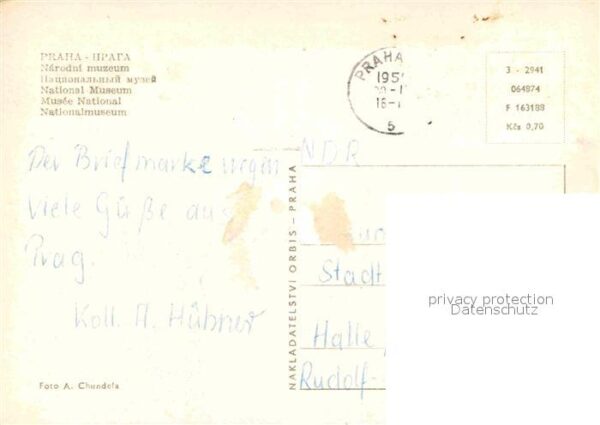 PRAHA - ПРАГА
Národní muzeum
Национальный музей
National Museum
Musée National
Nationalmuseum
PRAHA
195
16-1
5
3 - 2941
064874
F 163188
Kčs 0,70
Der Briefmarke wegen
Viele Güße aus
Prag.
Koll. A. Hübner
Foto A. Chundela
NAKLADATELSTVÍ ORBIS - PRAHA
NDR
Stadt
Halle
Rudolf-
privacy protection
Datenschutz